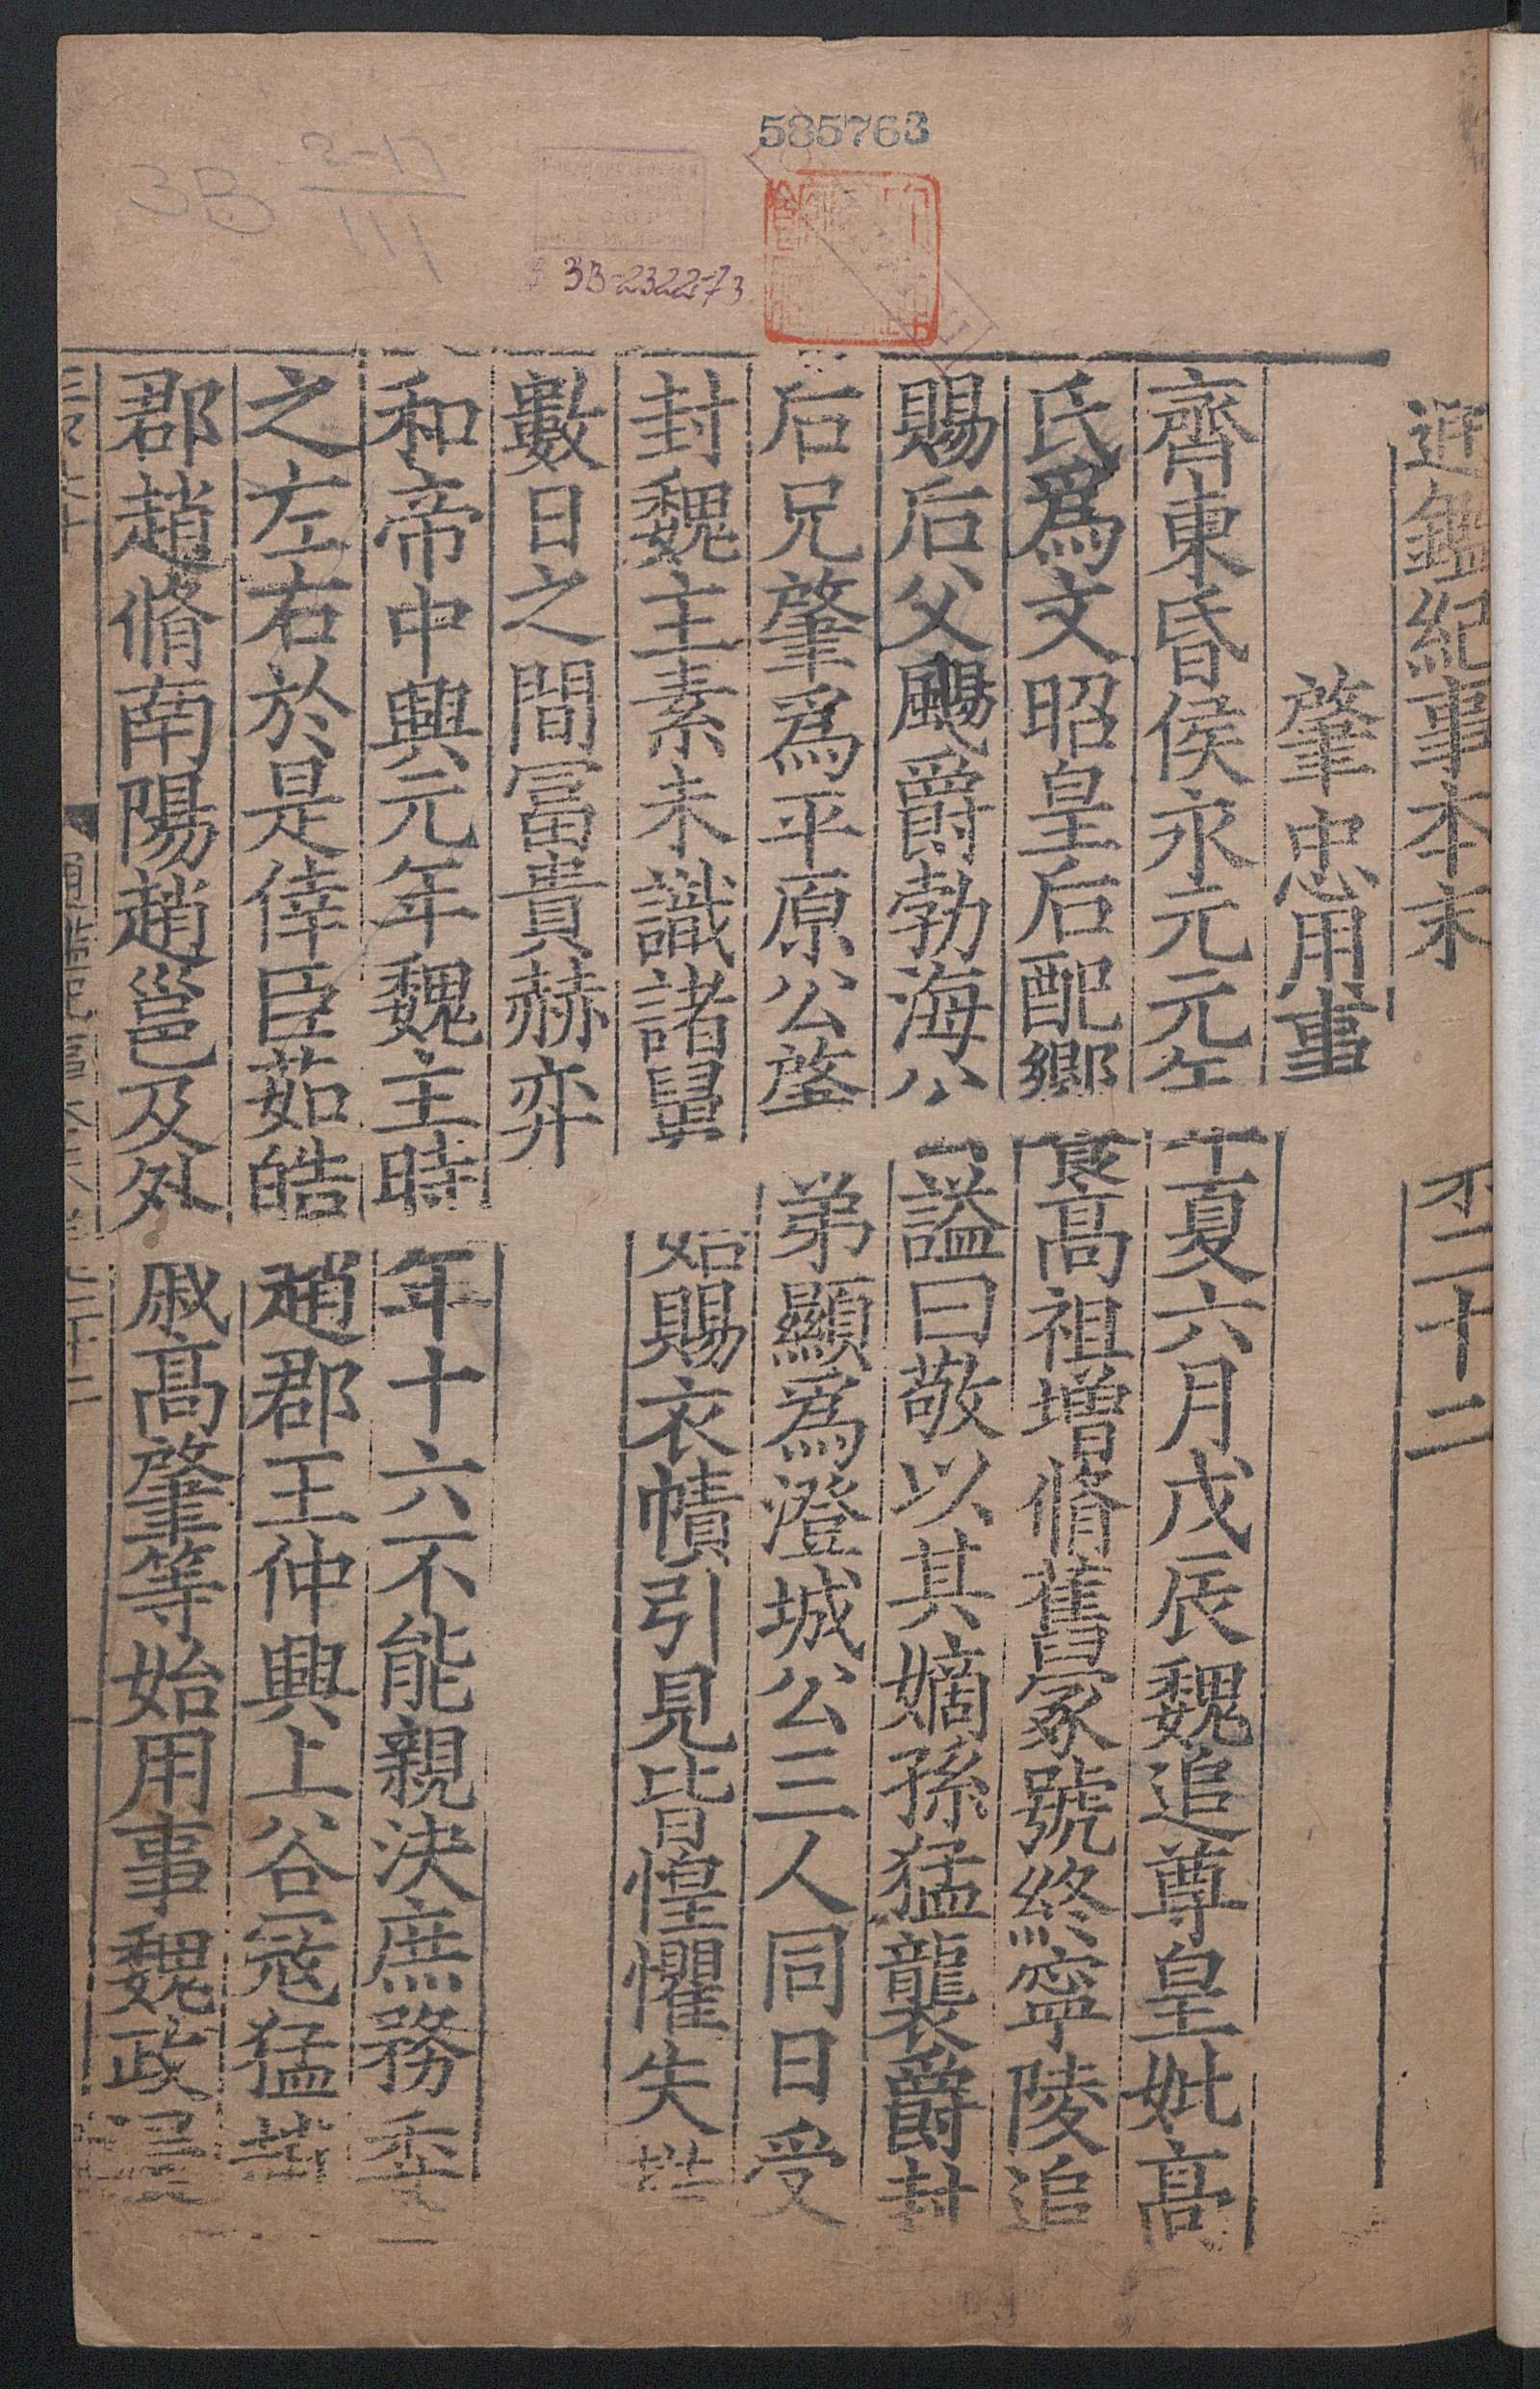 585763
3B 2-17
111
3B-2322-73
通鑑紀事本末 二十二
肇忠用事
齊東昏侯永元元年夏六月戊辰魏追尊皇妣高
氏爲文昭皇后配饗高祖增脩舊冢號終寧陵追
賜后父颺爵勃海公謚曰敬以其嫡孫猛襲爵封
后兄肇爲平原公肇弟顯爲澄城公三人同日受
封魏主素未識諸舅始賜衣幘引見皆惶懼失
數日之間冨貴赫弈
和帝中興元年魏主時年十六不能親決庶務委
之左右於是倖臣茹皓趙郡王仲興上谷寇猛
郡趙脩南陽趙邕及外戚高肇等始用事魏政